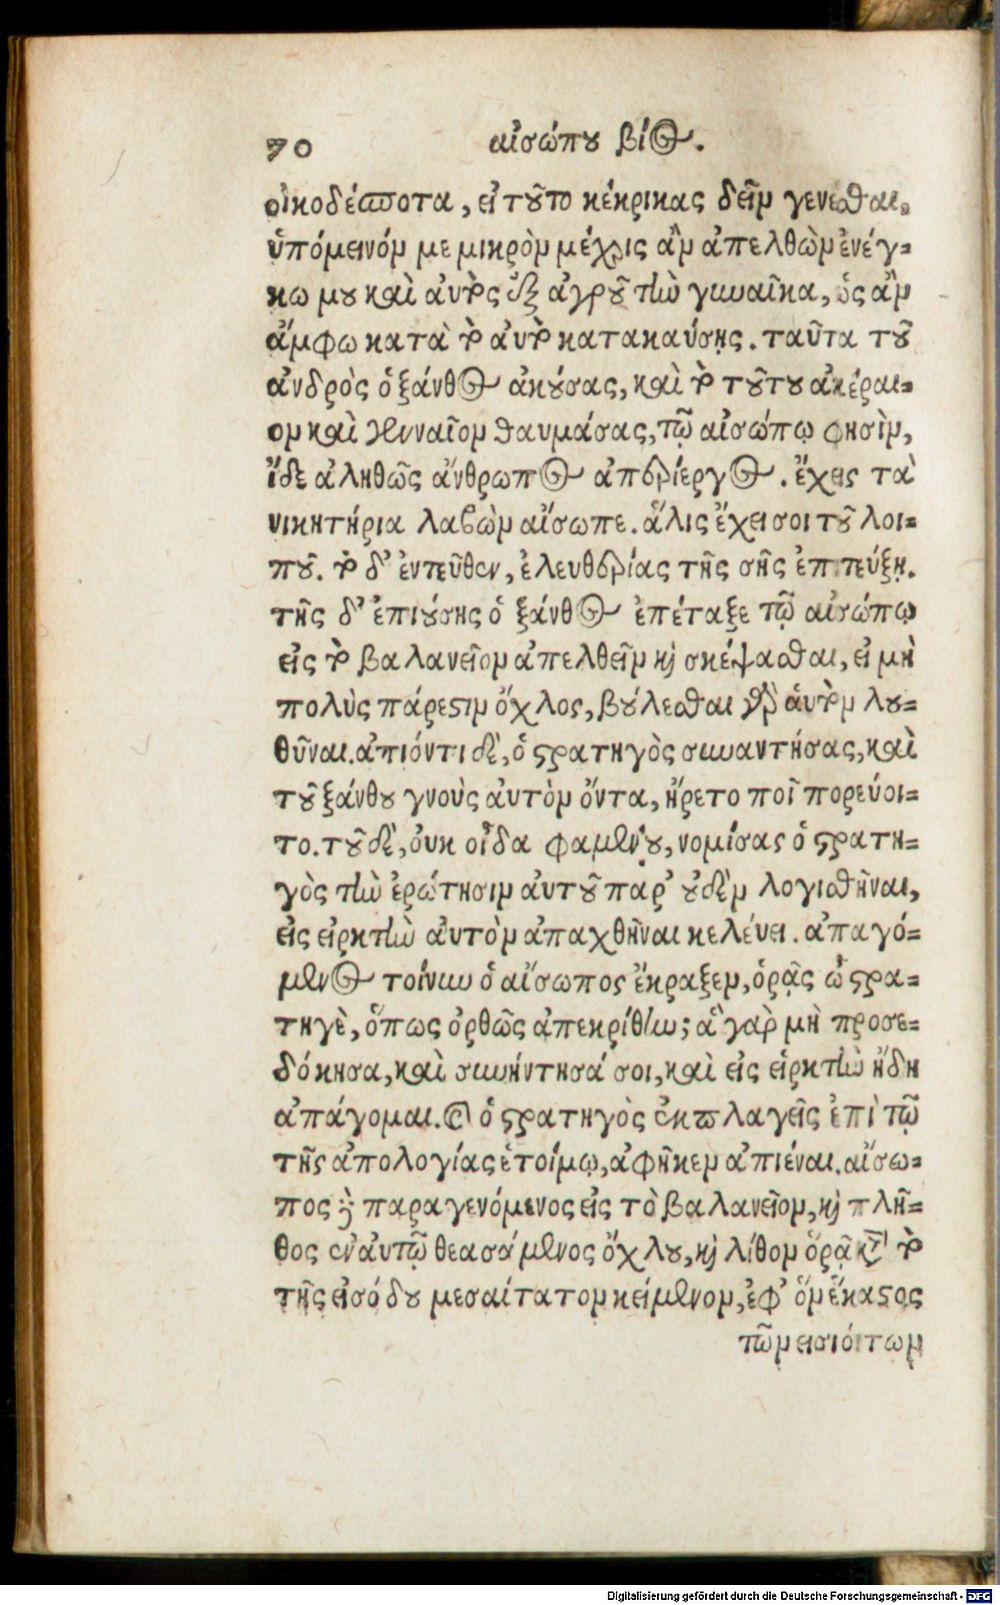 70 αἰσώπου βίος.
οἰκοδέσποτα, εἰ τοῦτο κέκρικας δεῖν γενέσθαι,
ὑπόμεινόν με μικρὸν μέχρις ἂν ἀπελθὼν ἐνέγ-
κω μου καὶ αὐτὸς ἐξ ἀγροῦ τὴν γυναῖκα, ὡς ἂν
ἄμφω κατὰ τὸ αὐτὸ κατακαύσῃς. ταῦτα τοῦ
ἀνδρὸς ὁ ξάνθος ἀκούσας, καὶ τὸ τούτου ἀκέραι-
ον καὶ γενναῖον θαυμάσας, τῷ αἰσώπῳ φησὶν,
ἴδε ἀληθῶς ἄνθρωπος ἀπερίεργος. ἔχεις τὰ
νικητήρια λαβὼν αἴσωπε. ἅλις ἔχει σοι τοῦ λοι-
ποῦ. τὸ δ' ἐντεῦθεν, ἐλευθερίας τῆς σῆς ἐπιτεύξῃ.
τῆς δ' ἐπιούσης ὁ ξάνθος ἐπέταξε τῷ αἰσώπῳ
εἰς τὸ βαλανεῖον ἀπελθεῖν καὶ σκέψασθαι, εἰ μὴ
πολὺς πάρεστιν ὄχλος, βούλεσθαι γὰρ ἁυτὸν λου-
θῦναι. ἀπιόντι δὲ, ὁ στρατηγὸς συναντήσας, καὶ
τοῦ ξάνθου γνοὺς ἀυτὸν ὄντα, ἤρετο ποῖ πορεύοι-
το. τοῦ δὲ, ὀυκ οἶδα φαμένου, νομίσας ὁ στρατη-
γὸς τὴν ἐρώτησιν ἀυτοῦ παρ' οὐδὲν λογισθῆναι,
εἰς εἱρκτὴν ἀυτὸν ἀπαχθῆναι κελέυει. ἀπαγό-
μενος τοίνυν ὁ αἴσωπος ἔκραξεν, ὁρᾷς ὦ στρα-
τηγὲ, ὅπως ὀρθῶς ἀπεκρίθην; ἃ γὰρ μὴ προσε-
δόκησα, καὶ συνήντησά σοι, καὶ εἰς εἱρκτὴν ἤδη
ἀπάγομαι. καὶ ὁ στρατηγὸς ἐκπλαγεὶς ἐπὶ τῷ
τῆς ἀπολογίας ἑτοίμῳ, ἀφῆκεν ἀπιέναι. αἴσω-
πος δὲ παραγενόμενος εἰς τὸ βαλανεῖον, καὶ πλῆ-
θος ἐν ἀυτῷ θεασάμενος ὄχλου, καὶ λίθον ὁρᾷ κατὰ τὸ
τῆς εἰσόδου μεσαίτατον κείμενον, ἐφ' ὃν ἕκαστος
τῶν εισιόντων
Digitalisierung gefördert durch die Deutsche Forschungsgemeinschaft - DFG